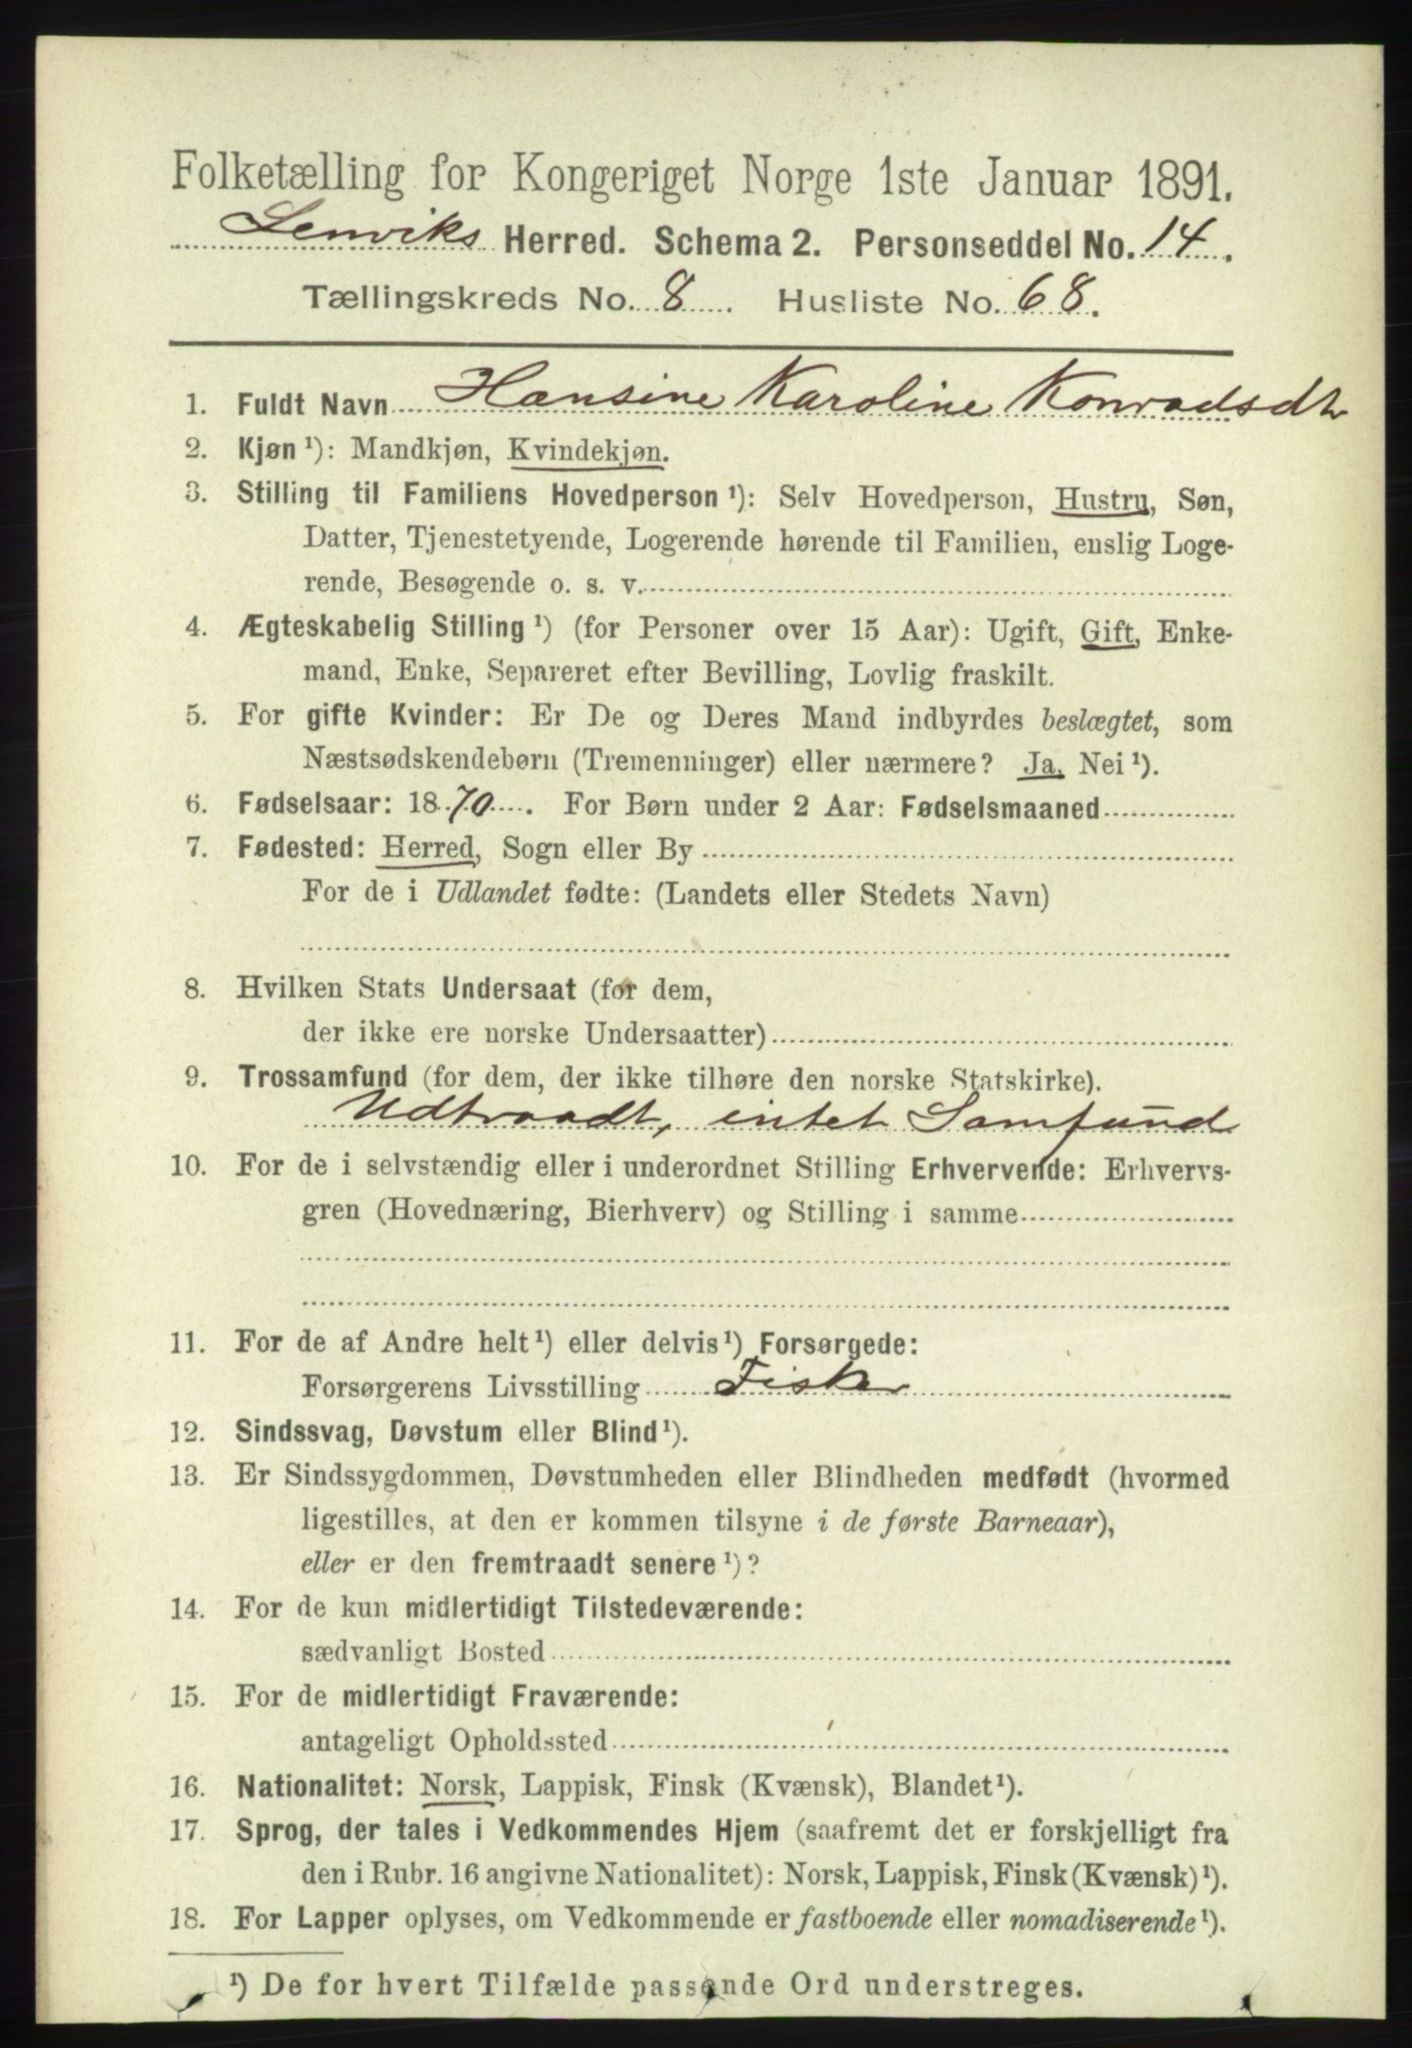 Folketælling for Kongeriget Norge 1ste Januar 1891.
Lenviks Herred. Schema 2. Personseddel No. 14.
Tællingskreds No. 8. Husliste No. 68.
1. Fuldt Navn Hansine Karoline Konradsdtr
2. Kjøn ¹): Mandkjøn, Kvindekjøn.
3. Stilling til Familiens Hovedperson ¹): Selv Hovedperson, Hustru, Søn,
Datter, Tjenestetyende, Logerende hørende til Familien, enslig Loge-
rende, Besøgende o. s. v.
4. Ægteskabelig Stilling ¹) (for Personer over 15 Aar): Ugift, Gift, Enke-
mand, Enke, Separeret efter Bevilling, Lovlig fraskilt.
5. For gifte Kvinder: Er De og Deres Mand indbyrdes beslægtet, som
Næstsødskendebørn (Tremenninger) eller nærmere? Ja, Nei ¹).
6. Fødselsaar: 1870. For Børn under 2 Aar: Fødselsmaaned
7. Fødested: Herred, Sogn eller By
For de i Udlandet fødte: (Landets eller Stedets Navn)
8. Hvilken Stats Undersaat (for dem,
der ikke ere norske Undersaatter)
9. Trossamfund (for dem, der ikke tilhøre den norske Statskirke).
Udtraadt, intet Samfund
10. For de i selvstændig eller i underordnet Stilling Erhvervende: Erhvervs-
gren (Hovednæring, Bierhverv) og Stilling i samme
11. For de af Andre helt ¹) eller delvis ¹) Forsørgede:
Forsørgerens Livsstilling Fisker
12. Sindssvag, Døvstum eller Blind ¹).
13. Er Sindssygdommen, Døvstumheden eller Blindheden medfødt (hvormed
ligestilles, at den er kommen tilsyne i de første Barneaar),
eller er den fremtraadt senere ¹)?
14. For de kun midlertidigt Tilstedeværende:
sædvanligt Bosted
15. For de midlertidigt Fraværende:
antageligt Opholdssted
16. Nationalitet: Norsk, Lappisk, Finsk (Kvænsk), Blandet ¹).
17. Sprog, der tales i Vedkommendes Hjem (saafremt det er forskjelligt fra
den i Rubr. 16 angivne Nationalitet): Norsk, Lappisk, Finsk (Kvænsk) ¹).
18. For Lapper oplyses, om Vedkommende er fastboende eller nomadiserende ¹).
¹) De for hvert Tilfælde passende Ord understreges.